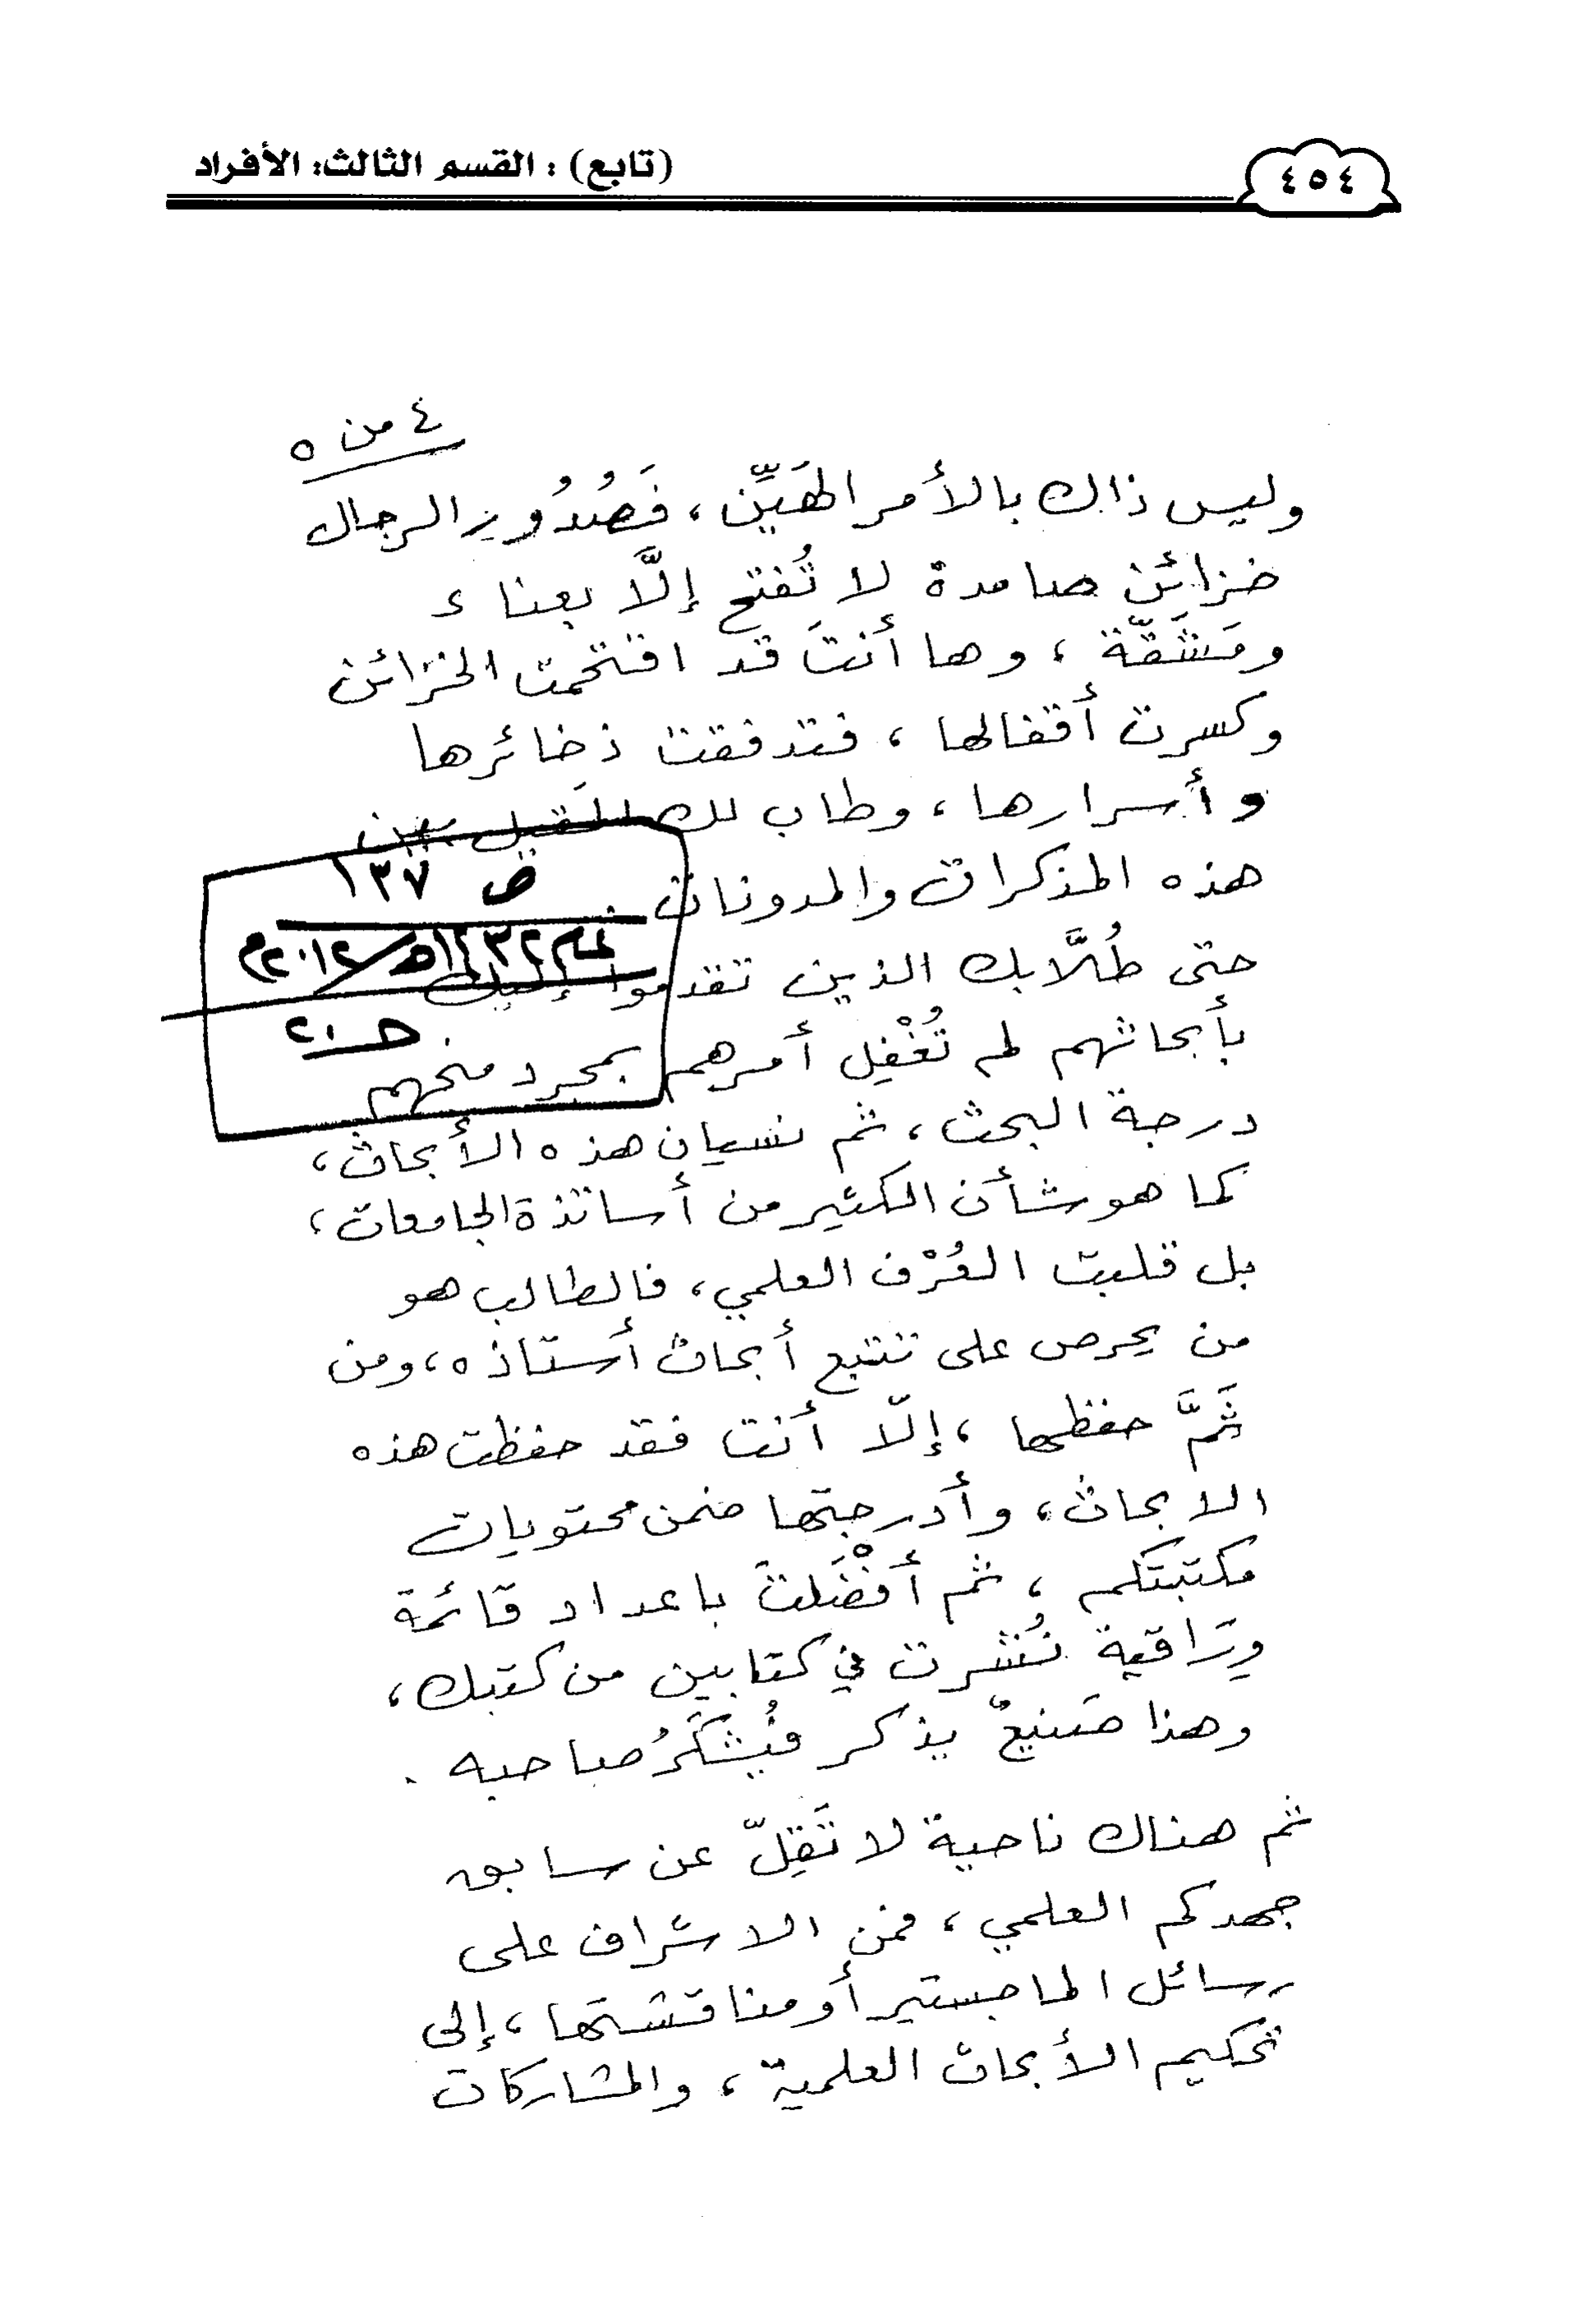 ٤٥٤
(تابع) : القسم الثالث: الأفراد
٤ من ٥
وليس ذاك بالأمر الهَيِّن ، فَصُدُور الرجال
خزائن صامدة لا تُفتح إلَّا بعناء
ومَشَقَّة ، وها أنتَ قد اقتحمت الخزائن
وكسرت أقفالها ، فتدفقت ذخائرها
وأسرارها ، وطاب لك المَقيل بين
هذه المذكرات والمدونات .
ص ١٣٧
حتى طُلَّابك الذين تقدموا إليك
بأبحاثهم لم تُغْفِل أمرهم بمجرد منحهم
درجة البحث ، ثم نسيان هذه الأبحاث ،
كما هو شأن الكثير من أساتذة الجامعات ،
بل قلبت العُرْف العلمي ، فالطالب هو
من يحرص على تتبع أبحاث أستاذه ، ومن
ثَمَّ حفظها ، إلّا أنت فقد حفظت هذه
الابحاث ، وأدرجتها ضمن محتويات
مكتبتكم ، ثم أفْضَلت باعداد قائمة
وِرَاقية نُشرت في كتابين من كتبك ،
وهذا صَنيعٌ يذكر فيُشكَرُ صاحبه .
ثم هناك ناحية لا تَقِلّ عن سابق
جهدكم العلمي ، فمن الاشراف على
رسائل الماجستير أو مناقشتها ، إلى
تحكيم الأبحاث العلمية ، والمشاركات